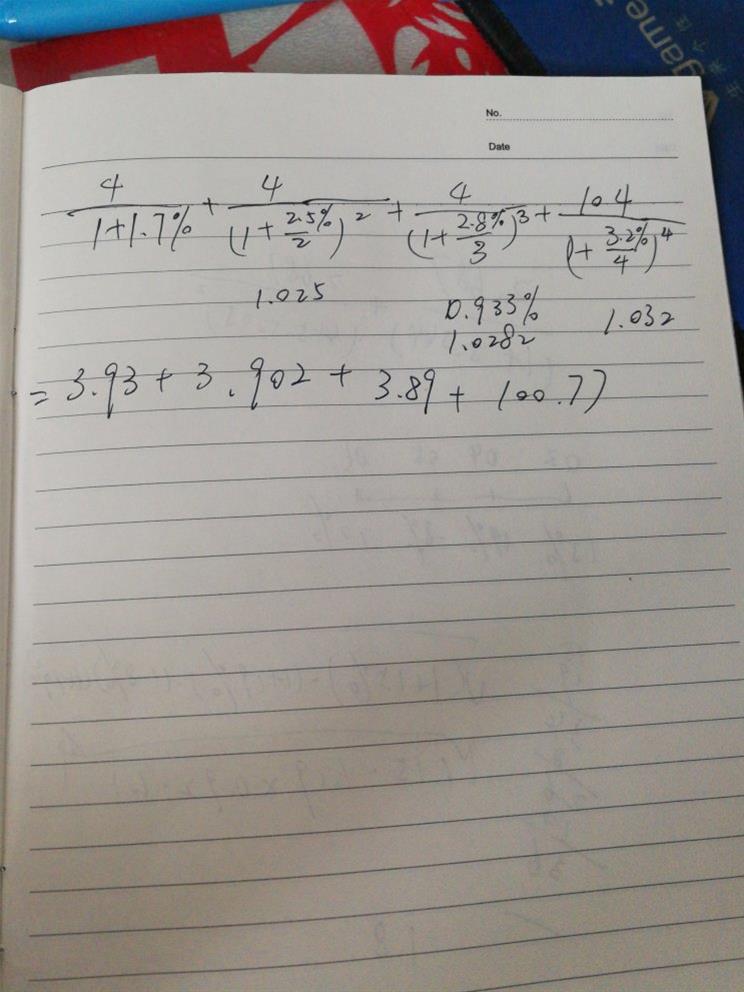 game
No.
Date
4/(1+1.7%) + 4/(1+2.5%/2)^2 + 4/(1+2.8%/3)^3 + 104/(1+3.2%/4)^4
1.025 0.933% 1.032
1.0282
= 3.93 + 3.902 + 3.89 + 100.77